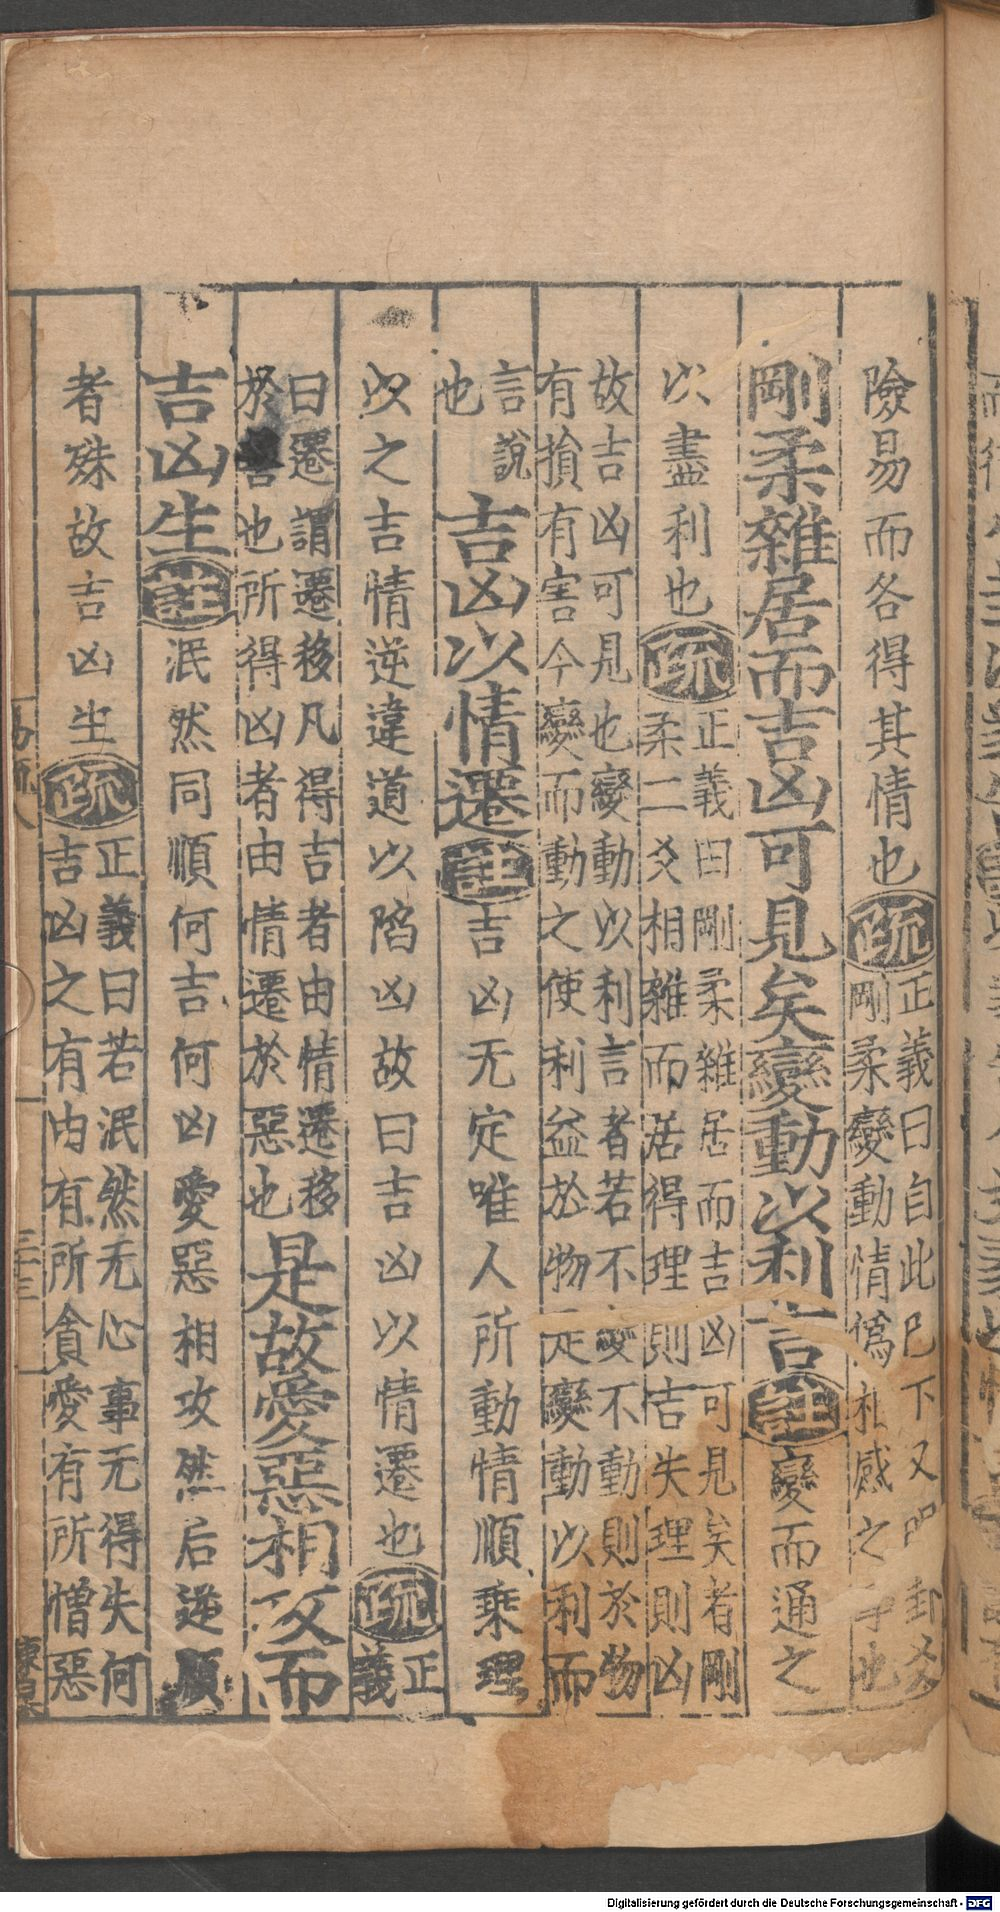 險易而各得其情也疏正義曰自此已下又明卦爻
剛柔變動情僞相感之事也
剛柔雜居而吉凶可見矣變動以利言註變而通之
以盡利也疏正義曰剛柔雜居而吉凶可見矣者剛
柔二爻相雜而居得理則吉失理則凶
故吉凶可見也變動以利言者若不變不動則於物
有損有害今變而動之使利益於物是變動以利而
言說
也
吉凶以情遷註吉凶无定唯人所動情順乘理
以之吉情逆違道以陷凶故曰吉凶以情遷也疏正
義
曰遷謂遷移凡得吉者由情遷移
於善也所得凶者由情遷於惡也
是故愛惡相攻而
吉凶生註泯然同順何吉何凶愛惡相攻然后逆順
者殊故吉凶生疏正義曰若泯然无心事无得失何
吉凶之有由有所貪愛有所憎惡
易疏八
三十三
Digitalisierung gefördert durch die Deutsche Forschungsgemeinschaft - DFG